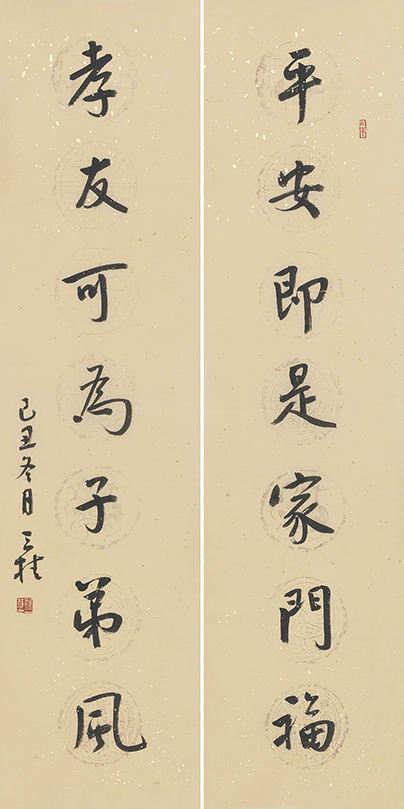 平安即是家門福
孝友可為子弟風
己丑冬日